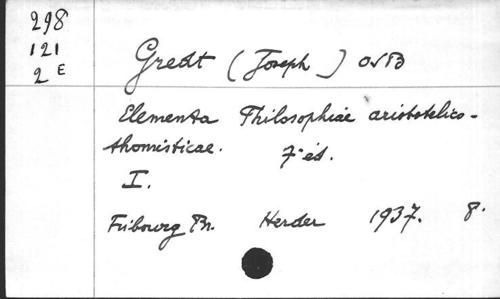 298
121
2 E
Gredt (Joseph) OSB
Elementa Philosophiae aristotelico-
thomisticae. 7e éd.
I.
Fribourg Br. Herder 1937. 8.